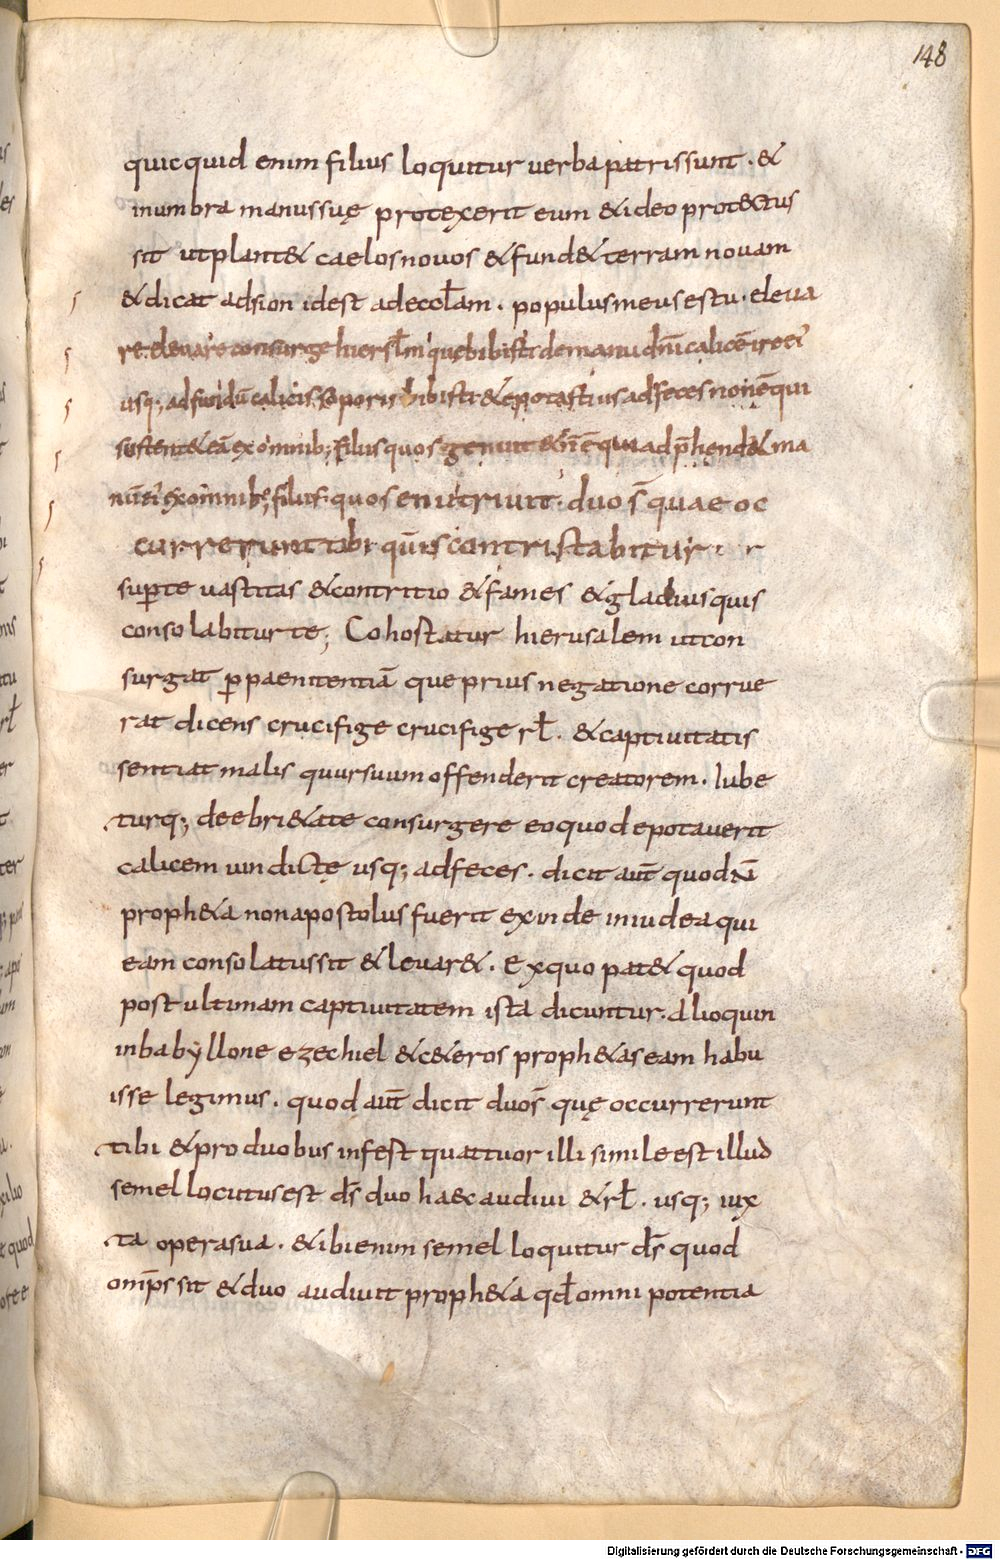 148
quicquid enim filius loquitur verba patris sunt · &
inumbra manus suę protexerit eum & ideo prot&tus
sit ut plant& caelos novos & fund& terram novam
& dicat adsion idest adecct̄am · populus meus es tu · eleva
re elevare consurge hiersl̄m quę bibisti de manu dn̄i calicē irę ei'
usq; ad fundū calicis soporis bibisti & epotasti usad feces non ē qui
sustent& eā ex omnib; filiis quos genuit & n̄ ē qui adp̄hend& ma
nū ei' ex omnib; filiis quos enutriuit · duo s̄ quae oc
currerunt tibi quis contristabitur
sup te vastitas & contritio & fames & gladius quis
consolabitur te; Cohostatur hierusalem ut con
surgat p paenitentiā que prius negatione corrue
rat dicens crucifige crucifige rl̄ · & captivitatis
sentiat malis quur suum offenderit creatorem · Iube
turq; de ebri&ate consurgere eo quod epotauerit
calicem uindictę usq; adfeces · dicit aut̄ quod n̄
proph&a non apostolus fuerit exinde iniudea qui
eam consolatus sit & levar& · Ex quo pat& quod
post ultimam captivitatem ista dicuntur · Alioquin
in babyllone ezechiel & c&eros proph&as eam habu
isse legimus · quod aut̄ dicit duo s̄ quę occurrerunt
tibi & pro duobus infest quattuor illi simile est illud
semel locutus est ds̄ duo haec audivi & rl̄ · usq; iux
ta opera sua · & ibi enim semel loquitur ds̄ quod
omp̄s sit & duo audiuit proph&a qd̄ omni potentia
Digitalisierung gefördert durch die Deutsche Forschungsgemeinschaft - DFG